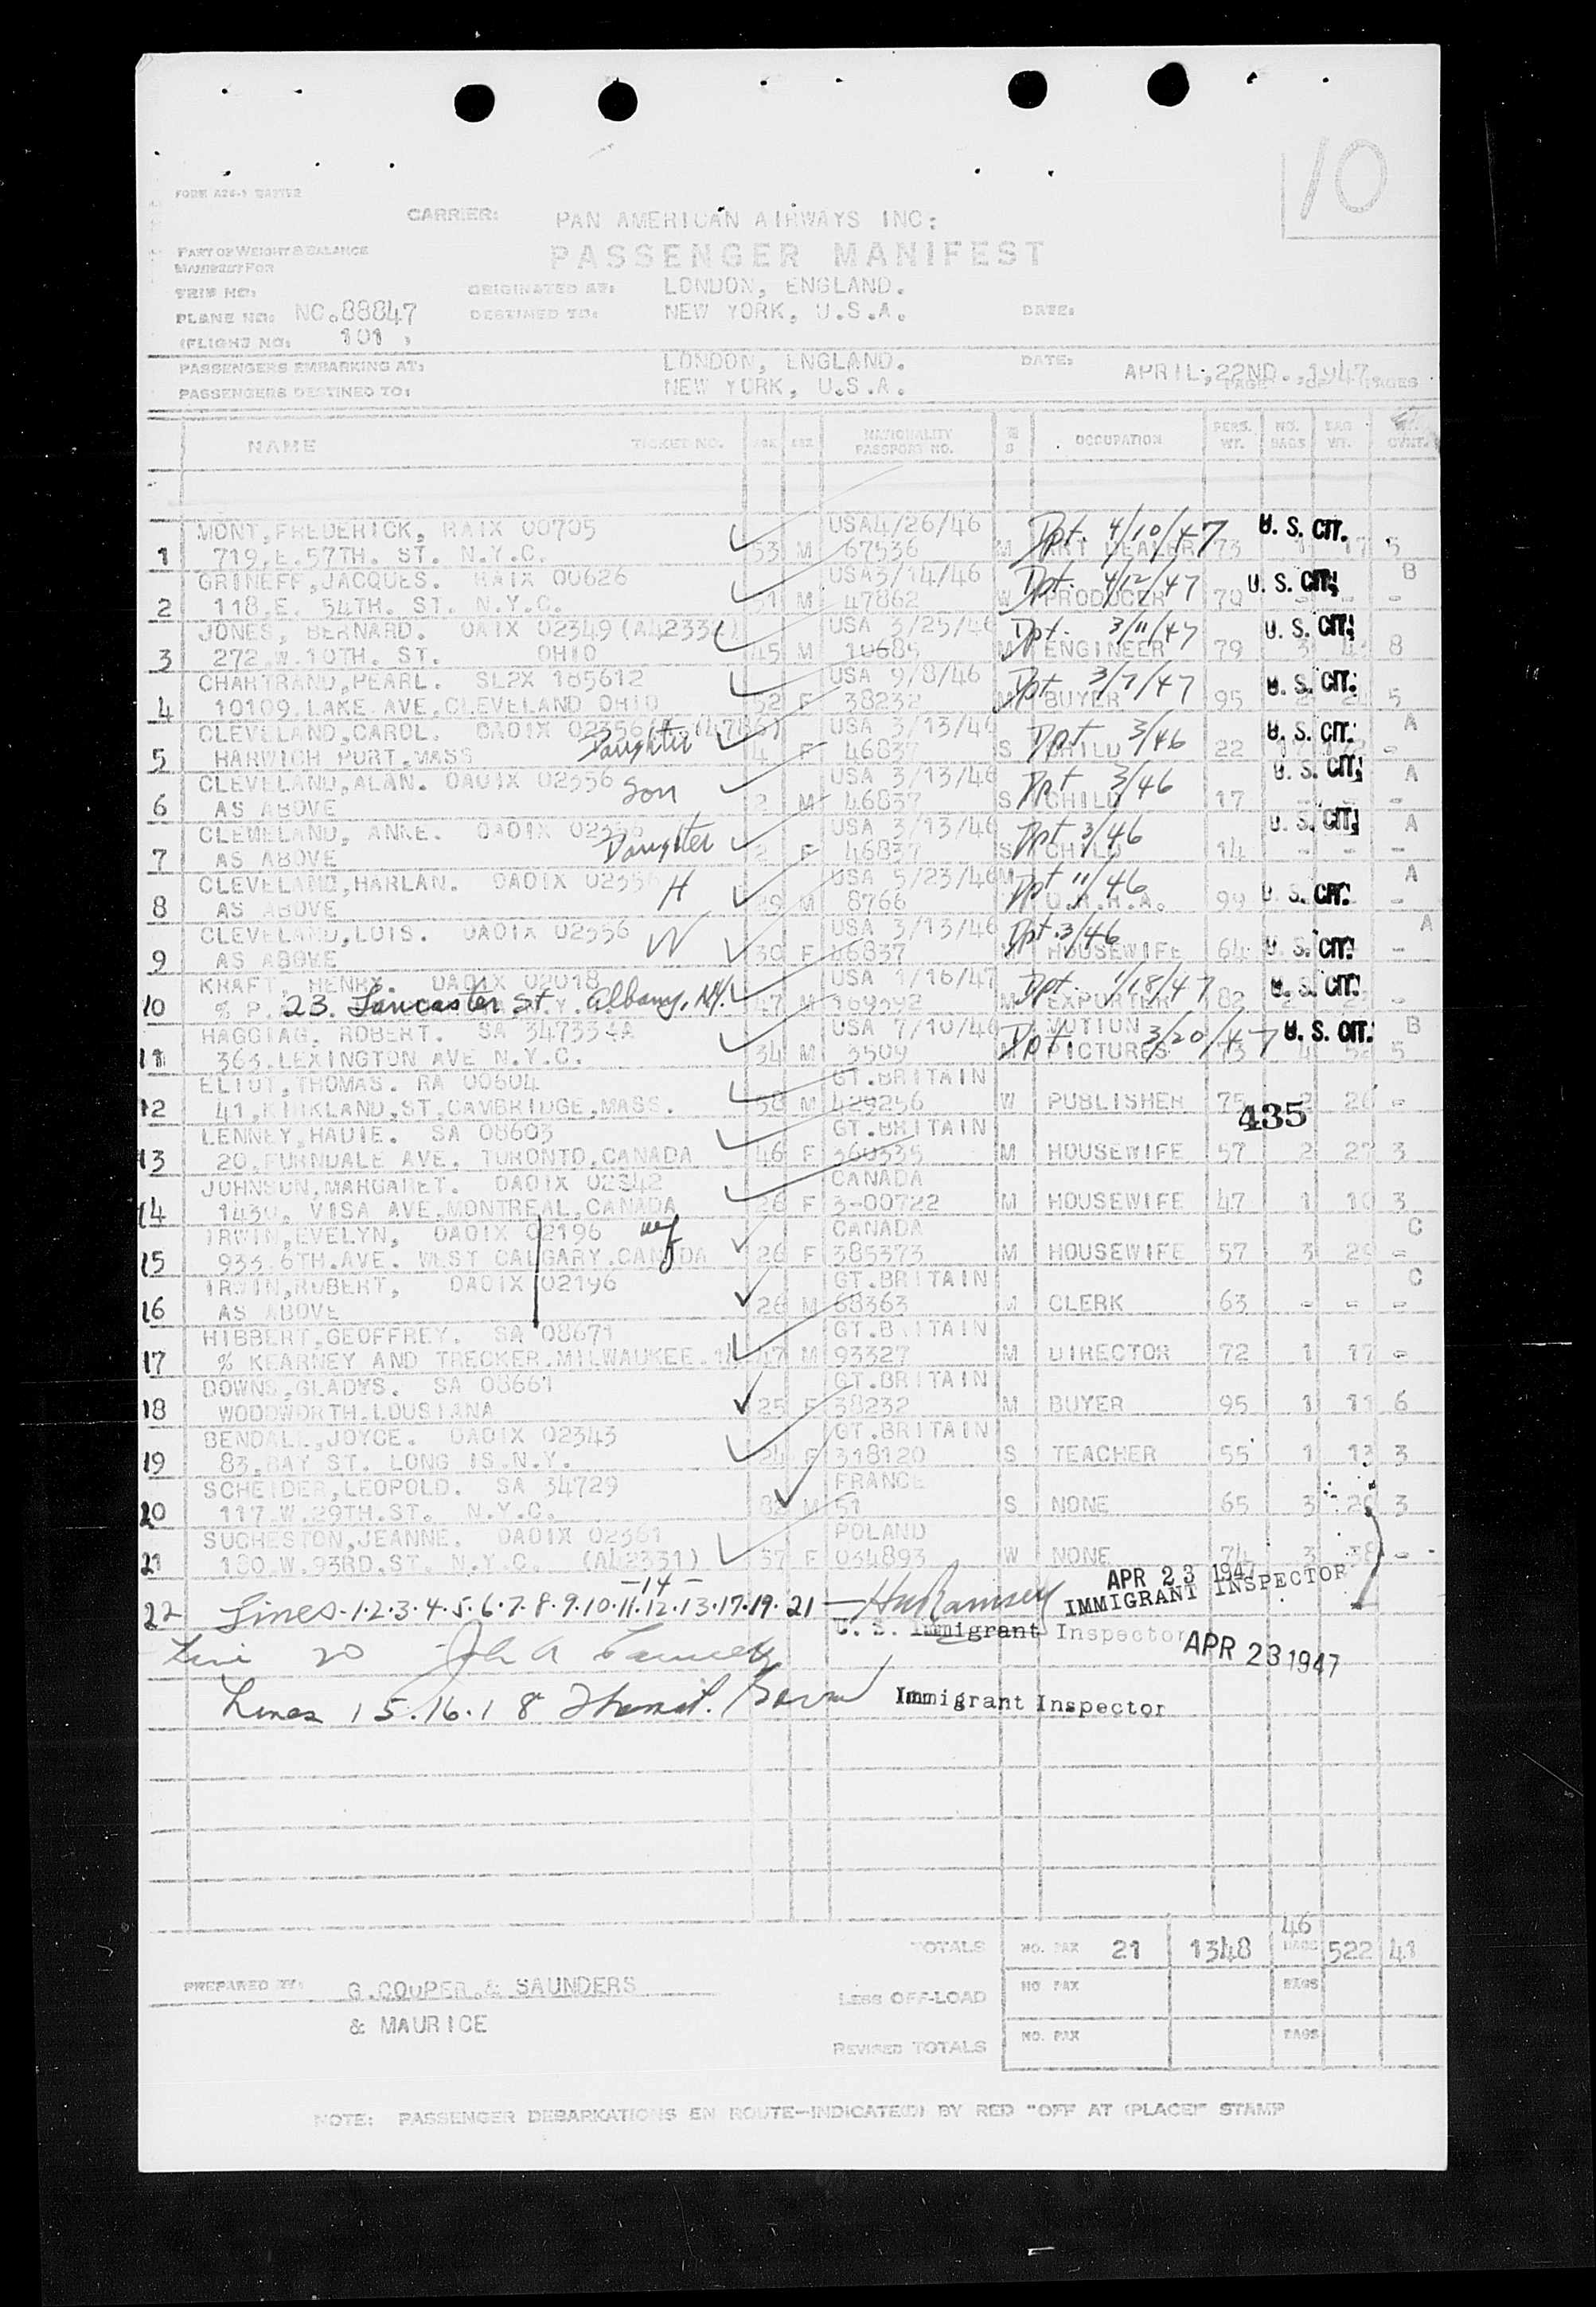 10
FORM A26-1
CARRIER: PAN AMERICAN AIRWAYS INC:
PART OF WEIGHT & BALANCE
MANIFEST FOR
PASSENGER MANIFEST
TRIP NO: ORIGINATED AT: LONDON, ENGLAND.
PLANE NO: NC.88847 DESTINED TO: NEW YORK, U.S.A. DATE:
FLIGHT NO: 101
PASSENGERS EMBARKING AT: LONDON, ENGLAND. DATE: APRIL,22ND.,1947
PASSENGERS DESTINED TO: NEW YORK, U.S.A. PAGE OF PAGES
NAME TICKET NO. AGE SEX NATIONALITY PASSPORT NO. M S OCCUPATION PERS. WT. NO. BAGS BAG WT.
MONT,FREDERICK, RAIX 00705 USA4/26/46 Dpt. 4/10/47 U. S. CIT.
1 719.E.57TH. ST. N.Y.C. 53 M 67536 M ART DEALER 73 1 17 5
GRINEFF,JACQUES. RAIX 00626 USA3/14/46 Dpt. 4/12/47 U. S. CIT. B
2 118.E. 54TH. ST. N.Y.C. 51 M 47862 W PRODUCER 70 - - -
JONES, BERNARD. OAIX 02349 USA 3/25/46 Dpt. 3/11/47 U. S. CIT.
3 272.W.10TH. ST. OHIO 45 M 10685 M ENGINEER 79 3 8
CHARTRAND,PEARL. SL2X 185612 USA 9/8/46 Dpt 3/7/47 U. S. CIT.
4 10109.LAKE AVE.CLEVELAND OHIO 52 F 38232 M BUYER 95 5
CLEVELAND,CAROL. OAOIX 02356 Daughter USA 3/13/46 Dpt 3/46 U. S. CIT. A
5 HARWICH PORT.MASS 4 F 46837 S CHILD 22 -
CLEVELAND,ALAN. OAOIX 02356 Son USA 3/13/46 Dpt 3/46 U. S. CIT. A
6 AS ABOVE 2 M 46837 S CHILD 17 - - -
CLEVELAND, ANNE. OAOIX 02356 Daughter USA 3/13/46 Dpt 3/46 U. S. CIT. A
7 AS ABOVE 2 F 46837 S CHILD 14 - - -
CLEVELAND,HARLAN. OAOIX 02356 H USA 5/23/46 Dpt 11/46 A
8 AS ABOVE 29 M 8766 M 99 U. S. CIT. -
CLEVELAND,LOIS. OAOIX 02356 W USA 3/13/46 Dpt. 3/46 A
9 AS ABOVE 30 F 46837 HOUSEWIFE 64 U. S. CIT. -
KRAFT, HENRY. OAOIX 02018 USA 1/16/47 Dpt. 1/18/47 U. S. CIT.
10 % P. 23 Lancaster St. Albany, N.Y. 47 M 169392 M EXPORTER 82 -
HAGGIAG, ROBERT. SA 347334A USA 7/10/46 Dpt. MOTION 3/20/47 U. S. CIT. B
11 363.LEXINGTON AVE N.Y.C. 34 M 3509 M PICTURES 73 4 52 5
ELIOT,THOMAS. RA 00604 GT.BRITAIN
12 41,KIRKLAND,ST,CAMBRIDGE,MASS. 58 M 429256 W PUBLISHER 75 2 26 -
435
LENNEY,HADIE. SA 08603 GT.BRITAIN
13 20.FURNDALE AVE. TORONTO.CANADA 46 F 360535 M HOUSEWIFE 57 2 27 3
JOHNSON,MARGARET. OAOIX 02342 CANADA
14 1430. VISA AVE.MONTREAL,CANADA 26 F 3-00722 M HOUSEWIFE 47 1 10 3
IRWIN,EVELYN, OAOIX 02196 CANADA C
15 933.6TH.AVE. WEST CALGARY.CANADA 26 F 385373 M HOUSEWIFE 57 3 29 -
IRWIN,ROBERT, OAOIX 02196 GT.BRITAIN C
16 AS ABOVE 26 M 68363 M CLERK 63 - - -
HIBBERT,GEOFFREY. SA 08671 GT.BRITAIN
17 % KEARNEY AND TRECKER.MILWAUKEE. 47 M 93327 M DIRECTOR 72 1 17 -
DOWNS,GLADYS. SA 08661 GT.BRITAIN
18 WOODWORTH.LOUSIANA 25 F 38232 M BUYER 95 1 11 6
BENDALL,JOYCE. OAOIX 02343 GT.BRITAIN
19 83.BAY ST. LONG IS.N.Y. 24 F 318120 S TEACHER 55 1 13 3
SCHEIDER,LEOPOLD. SA 34729 FRANCE
20 117.W.29TH.ST. N.Y.C. 82 M 51 S NONE 65 3 26 3
SUCHESTON,JEANNE. OAOIX 02361 POLAND
21 180.W.93RD.ST. N.Y.C. (A42331) 37 F 034893 W NONE 74 3 38 -
-14-
APR 23 1947
22 Lines.1.2.3.4.5.6.7.8.9.10.11.12.13.17.19.21 — IMMIGRANT INSPECTOR
U. S. Immigrant Inspector
Line 20 John A APR 23 1947
Lines 15.16.18 Immigrant Inspector
TOTALS NO. PAX 21 1348 46 BAGS 522 41
PREPARED BY: G.COUPER.& SAUNDERS
& MAURICE
LESS OFF-LOAD NO PAX BAGS
REVISED TOTALS NO. PAX BAGS
NOTE: PASSENGER DEBARKATIONS EN ROUTE—INDICATE(D) BY RED "OFF AT (PLACE)" STAMP